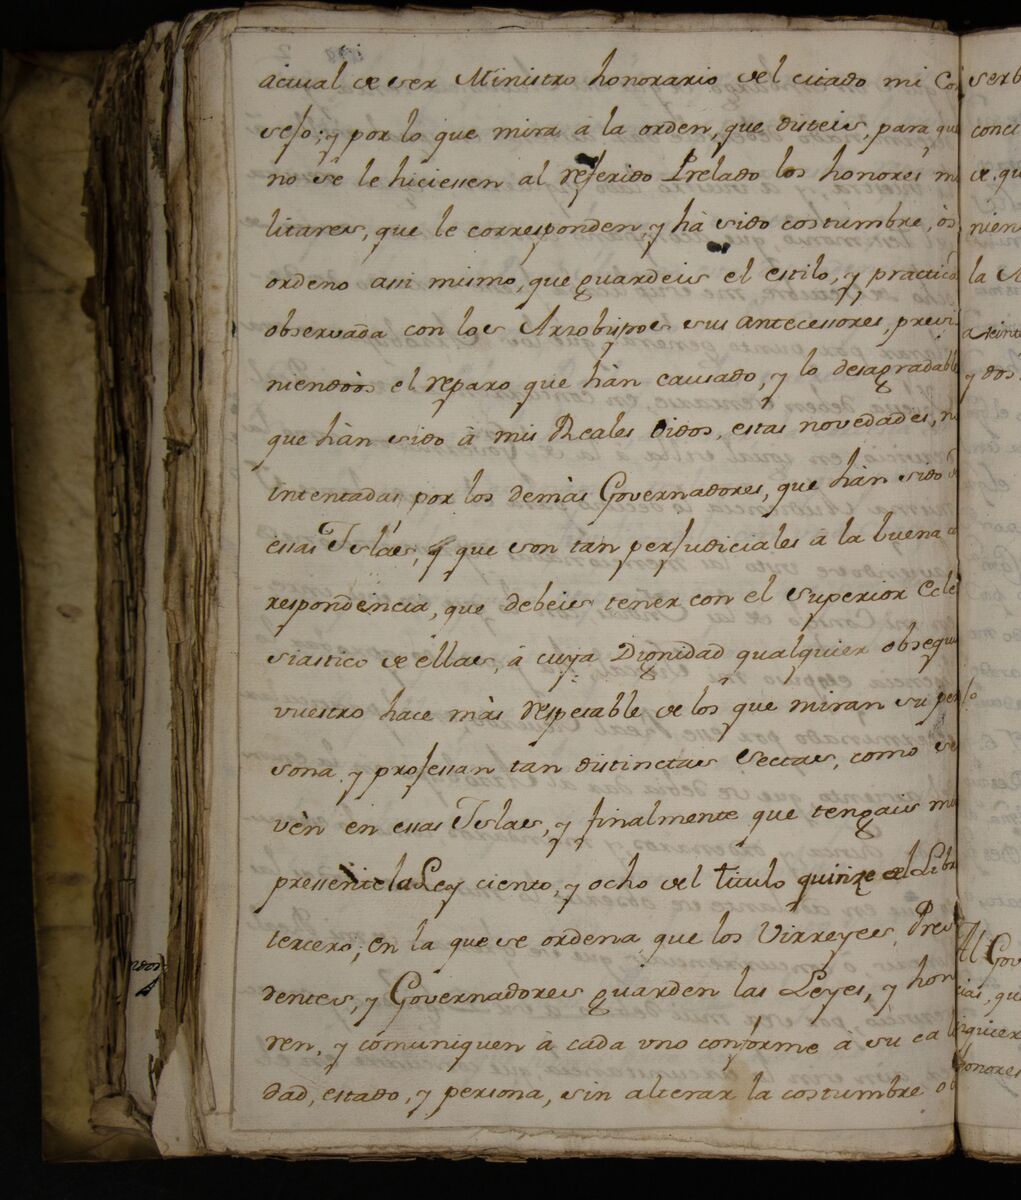 actual de ser Ministro honorario del citado mi Con
sejo; y por lo que mira à la orden, que disteis, para que
no se le hiciessen al referido Prelado los honores mi
litares, que le corresponden, y hà sido costumbre, òs
ordeno assi mismo, que guardeis el estilo, y practica
observada con los Arzobispos sus antecessores, previ
niendoòs el reparo que hàn causado, y lo desagradable
que hàn sido à mis Reales oidos, estas novedades, no
intentadas por los demàs Governadores, que hàn sido de
essas Islas, y que son tan perjudiciales à la buena co
respondencia, que debeis tener con el Superior Ecle
siastico de èllas, à cuya Dignidad qualquier obsequio
vuestro hace màs respetable de los que miran su per
sona, y professan tan distinctas Sectas, como se
vèn en essas Islas, y finalmente que tengais muy
pressente la Ley ciento, y ocho del titulo quinze del Libro
tercero, en la que se ordena que los Virreyes, Presi
dentes, y Governadores guarden las Leyes, y hon
ren, y comuniquen à cada uno conforme à su cali
dad, estado, y persona, sin alterar la costumbre ob
serb
conci
de qu
nien
la A
veinte
y dos
Al Gov
cias, qu
honores